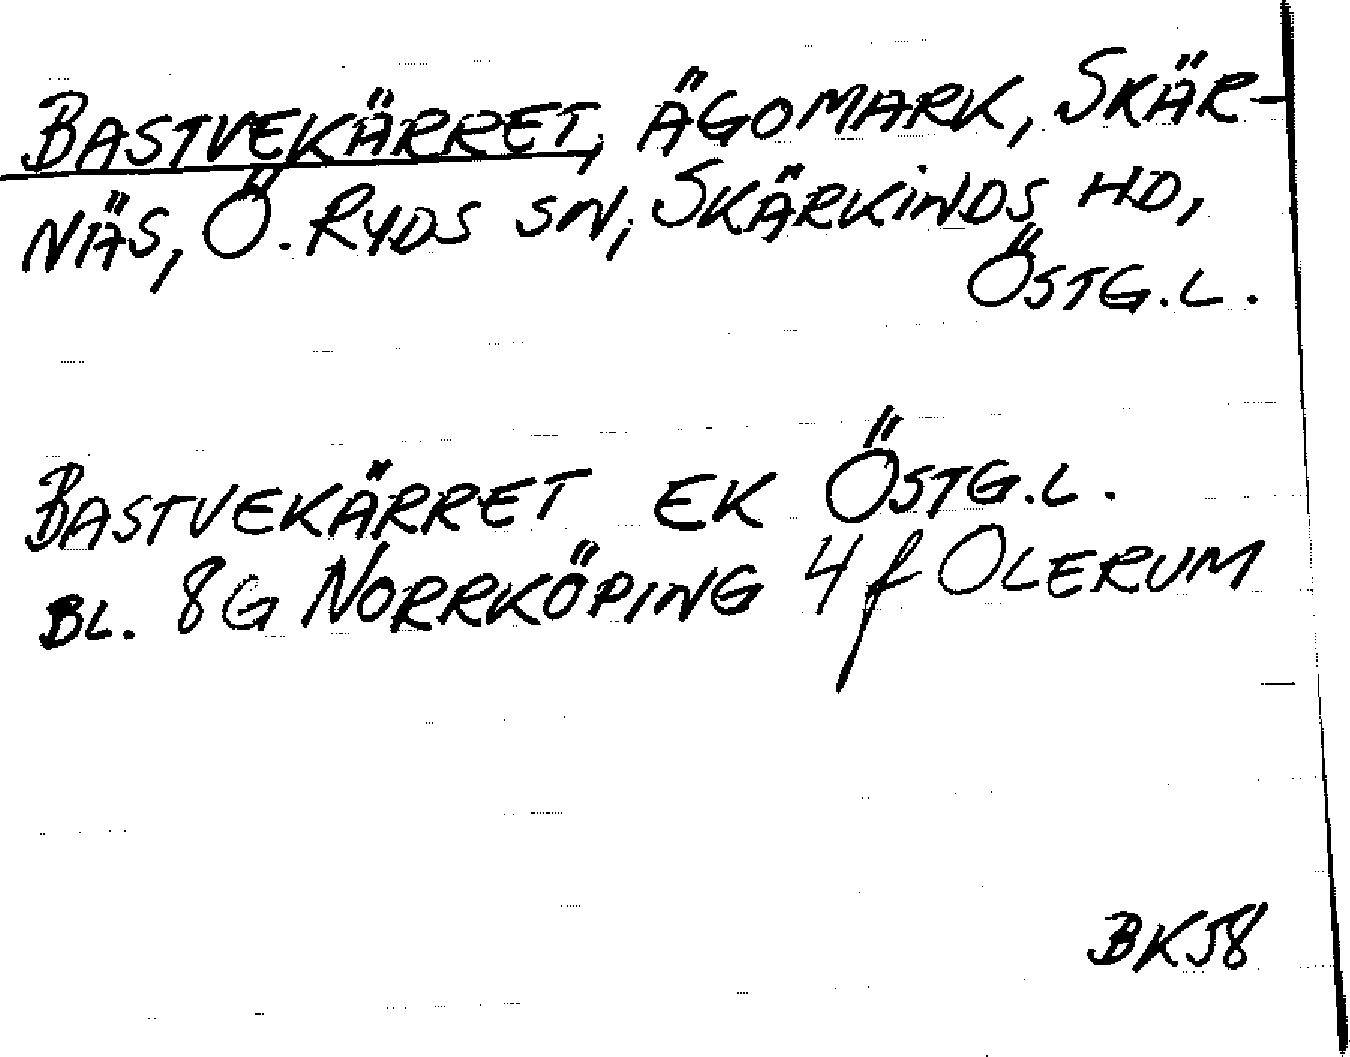 BASTVEKÄRRET, ÄGOMARK, SKÄR-
NÄS, Ö. RYDS SN, SKÄRKINDS HD,
ÖSTG.L.
BASTVEKÄRRET EK ÖSTG.L.
BL. 8G NORRKÖPING 4f OLERUM
BK58